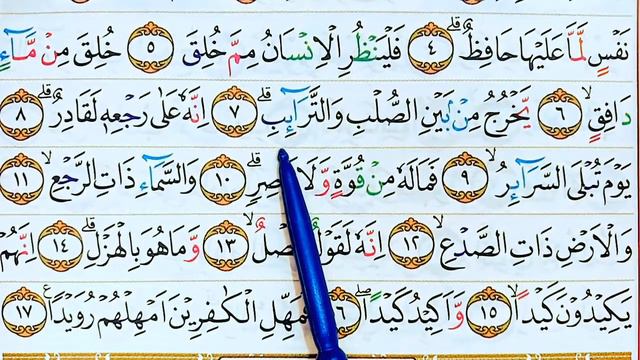 نَفْسٍ لَّمَّا عَلَيْهَا حَافِظٌ ۗ ٤ فَلْيَنْظُرِ الْاِنْسَانُ مِمَّ خُلِقَ ٥ خُلِقَ مِنْ مَّآءٍ
دَافِقٍ ۙ ٦ يَّخْرُجُ مِنْۢ بَيْنِ الصُّلْبِ وَالتَّرَاۤىِٕبِ ۗ ٧ اِنَّهٗ عَلٰى رَجْعِهٖ لَقَادِرٌ ۗ ٨
يَوْمَ تُبْلَى السَّرَاۤىِٕرُ ۙ ٩ فَمَالَهٗ مِنْ قُوَّةٍ وَّلَا ۗ ١٠ وَالسَّمَاۤءِ ذَاتِ الرَّجْعِ ۙ ١١
وَالْاَرْضِ ذَاتِ الصَّدْعِ ۙ ١٢ اِنَّهٗ لَقَوْلٌ ۙ ١٣ وَّمَا هُوَ بِالْهَزْلِ ۗ ١٤ اِنَّهُمْ
يَكِيْدُوْنَ كَيْدًا ۙ ١٥ وَّاَكِيْدُ كَيْدًا ۖ فَمَهِّلِ الْكٰفِرِيْنَ اَمْهِلْهُمْ رُوَيْدًا ࣖ ١٧